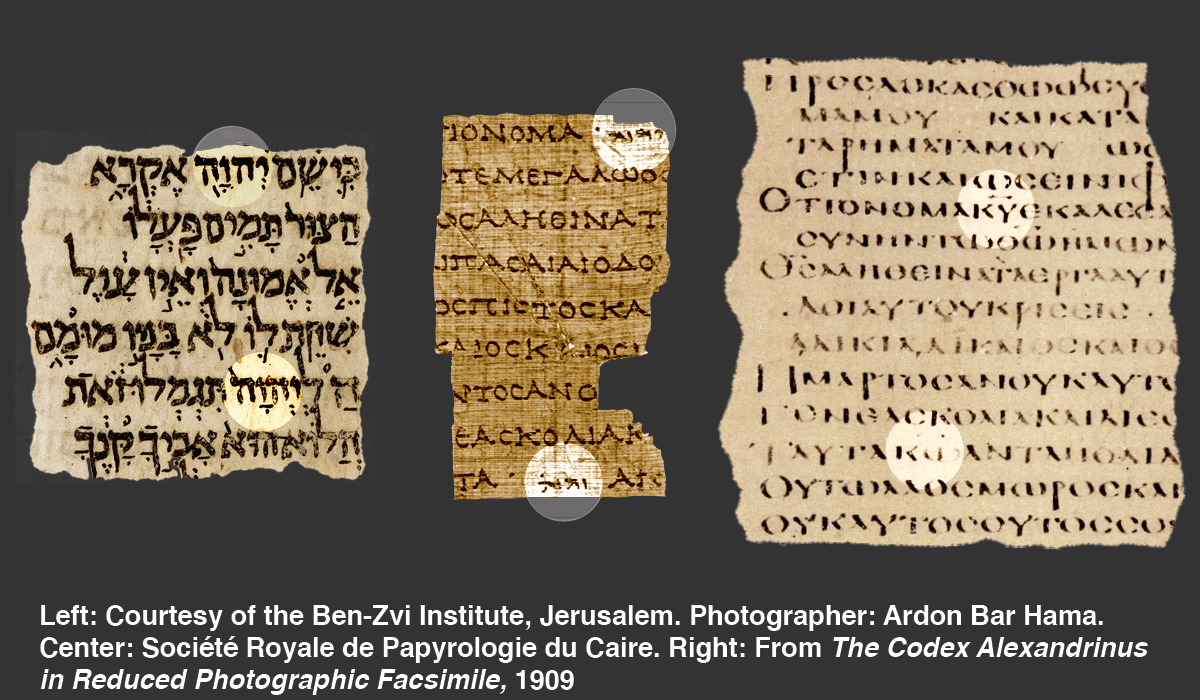 כִּי שֵׁם יְהוָה אֶקְרָא
הַצּוּר תָּמִים פָּעֳלוֹ
אֵל אֱמוּנָה וְאֵין עָוֶל
שִׁחֵת לוֹ לֹא בָּנָיו מוּמָם
הֲ לַיהוָה תִּגְמְלוּ זֹאת
הֲלוֹא הוּא אָבִיךָ קָּנֶךָ
ΤΙΟΝΟΜΑ יהוה
ΤΕΜΕΓΑΛΩϹ
ΟϹΑΛΗΘΙΝΑΤ
ΙΠΑϹΑΙΑΙΟΔΟ
ΟϹΠΙϹΤΟϹΚΑ
ΚΑΙΟϹΚ ΙΟϹ
ΑΡΤΟϹΑΝΟ
ΕΑϹΚΟΛΙΑΚ
ΤΑ יהוה ΑΠ
ΠΡΟϹΔΟΚΑϹΘΩΩϹΥ
ΜΑΜΟΥ ΚΑΙΚΑΤΑ
ΤΑΡΗΜΑΤΑΜΟΥ ΩϹ
ϹΤΙΝΚΑΙΩϹΕΙΝΙΦ
ΟΤΙΟΝΟΜΑΚΥΕΚΑΛΕϹΑ
ϹΥΝΗΝΤΩΘΩΗΜΩΝ
ΘϹΑΛΗΘΕΙΝΑΤΑΕΡΓΑΑΥΤ
ΔΟΙΑΥΤΟΥΚΡΙϹΕΙϹ
ΔΙΚΙΑ,ΔΙΚΑΙΟϹΚΑΙΟϹ
ΗΜΑΡΤΟϹΑΝΟΥΚΑΥΤΩ
ΓΕΝΕΑϹΚΟΛΙΑΚΑΙΔΙΕϹ
ΤΑΥΤΑΚΩΑΝΤΑΠΟΔΙΔ
ΟΥΤΩΛΑΟϹΜΩΡΟϹΚΑΙ
ΟΥΚΑΥΤΟϹΟΥΤΟϹϹΟΥ
Left: Courtesy of the Ben-Zvi Institute, Jerusalem. Photographer: Ardon Bar Hama.
Center: Société Royale de Papyrologie du Caire. Right: From The Codex Alexandrinus
in Reduced Photographic Facsimile, 1909